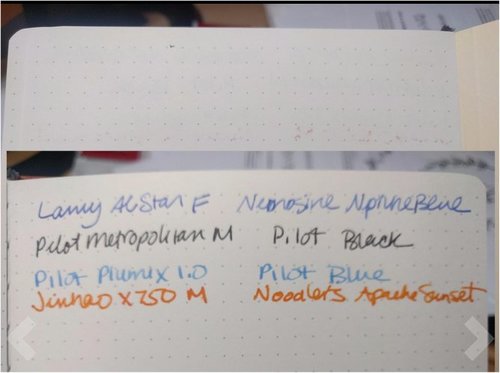 Lamy Al-Star F Nemosine Neptune Blue
Pilot Metropolitan M Pilot Black
Pilot Plumix 1.0 Pilot Blue
Jinhao X750 M Noodler's Apache Sunset